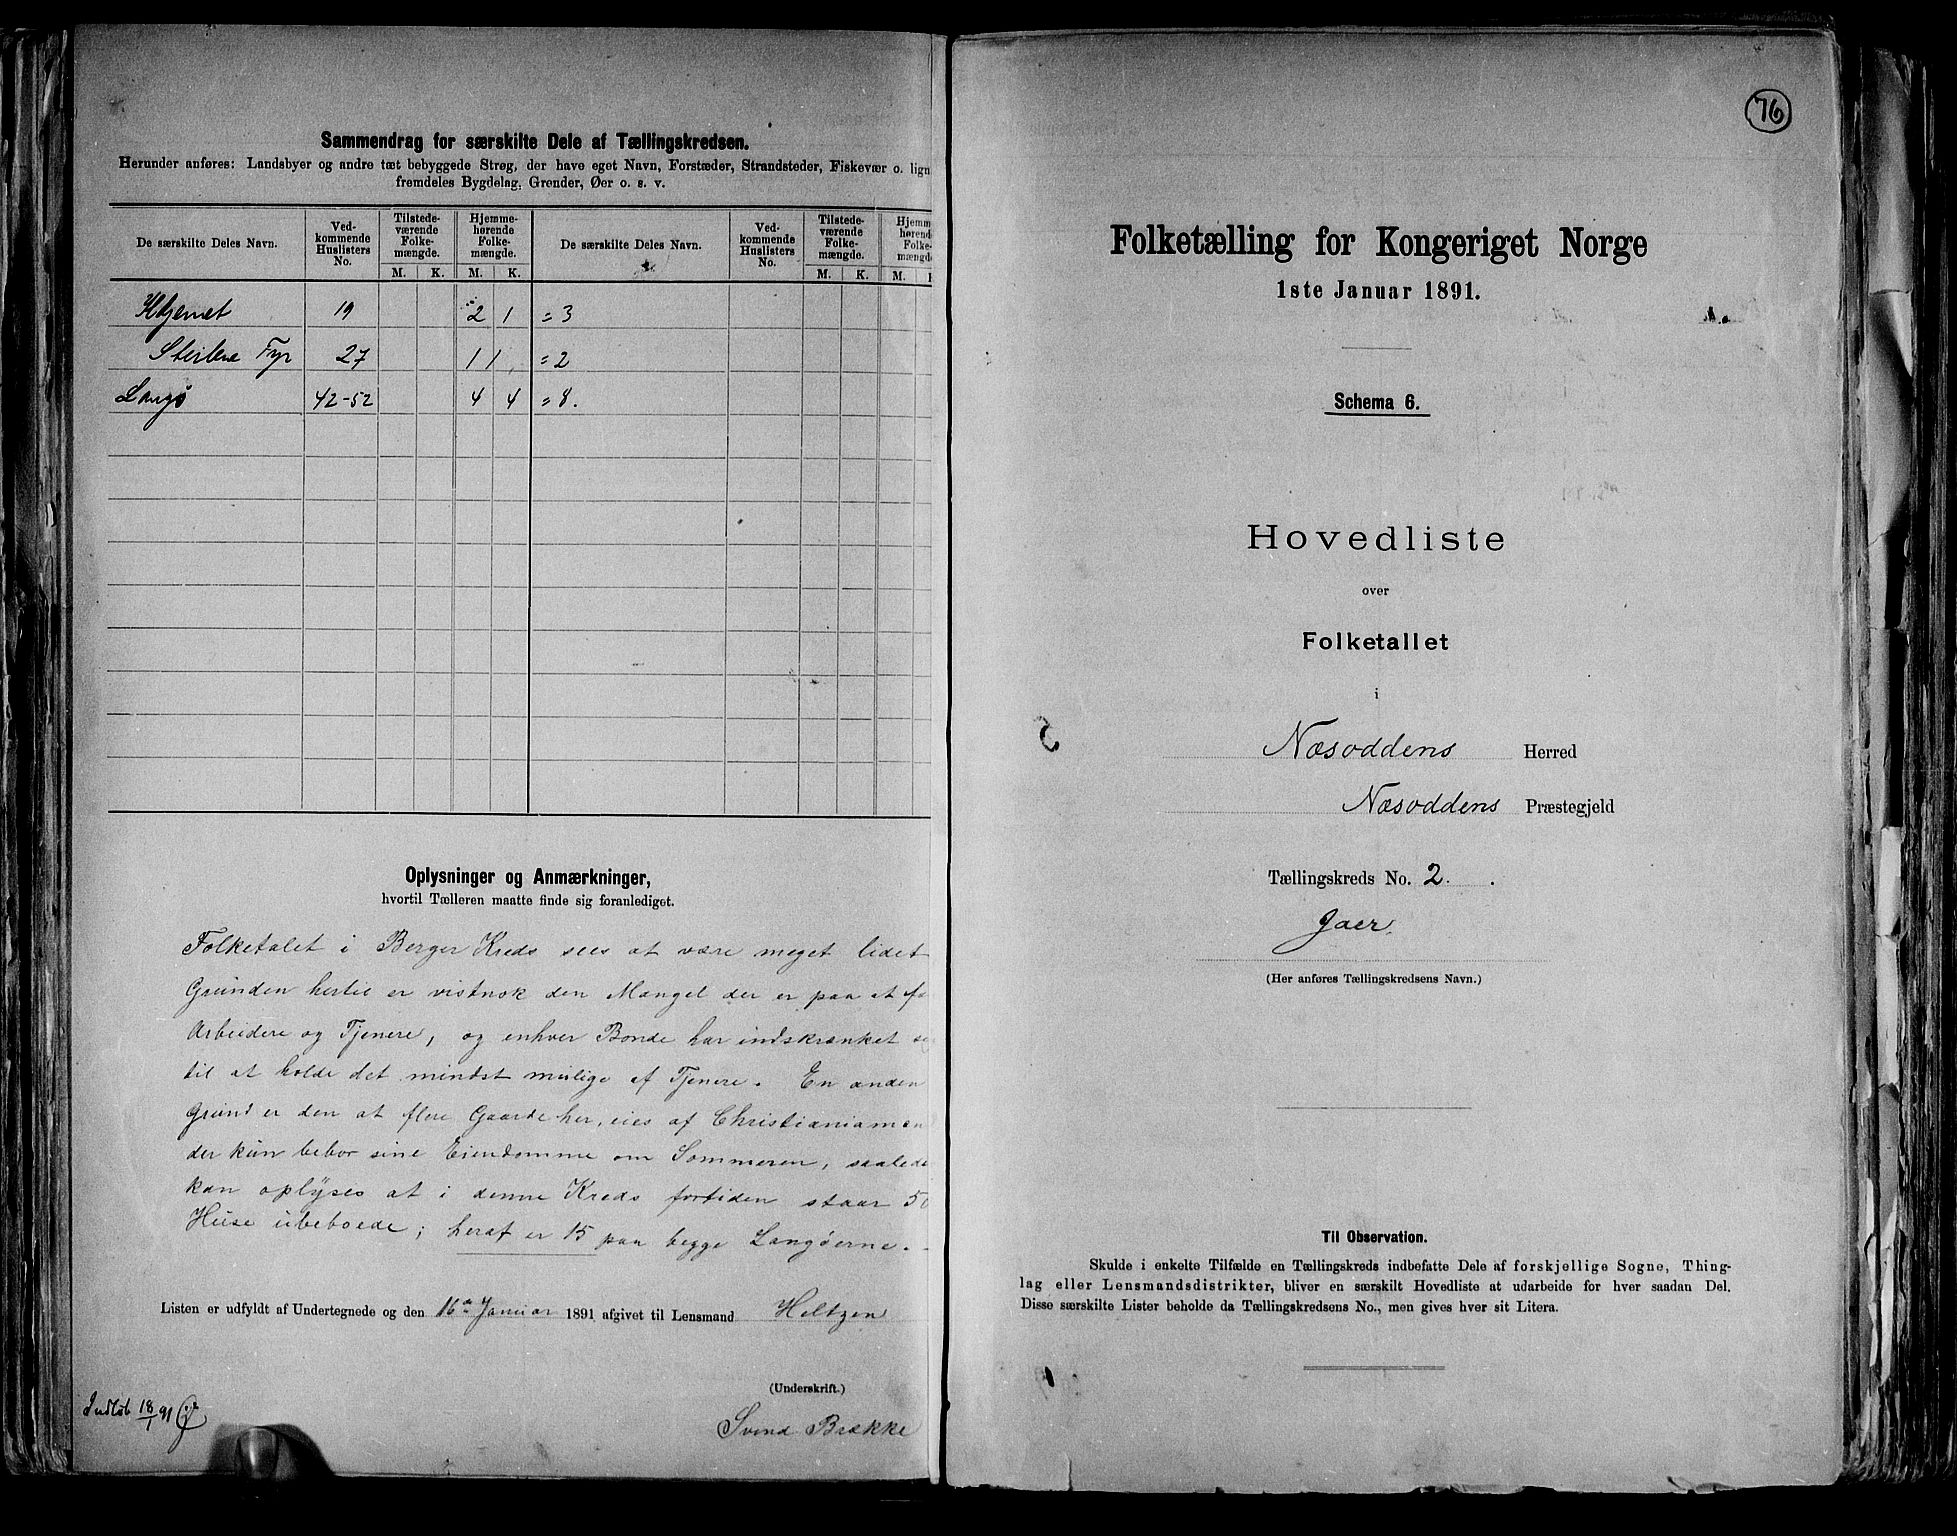 Sammendrag for særskilte Dele af Tællingskredsen.
Herunder anføres: Landsbyer og andre tæt bebyggede Strøg, der have eget Navn, Forstæder, Strandsteder, Fiskevær o. lign
fremdeles Bygdelag, Grender, Øer o. s. v.
De særskilte Deles Navn. Ved-kommende Huslisters No. Tilstede-værende Folke-mængde. Hjemme-hørende Folke-mængde. De særskilte Deles Navn. Ved-kommende Huslisters No. Tilstede-værende Folke-mængde. Hjemm hørende Folke- mængde
M. K. M. K. M. K. M.
19 2 1 = 3
Steilene Fyr 27 1 1 = 2
Langø 42-52 4 4 = 8.
Oplysninger og Anmærkninger,
hvortil Tælleren maatte finde sig foranlediget.
Folketalet i Berger Kreds sees at være meget lidet
Grunden hertil er vistnok den Mangel der er paa at
Arbeidere og Tjenere, og enhver Bonde har indskrænket
til at holde det mindst mulige af Tjenere. En anden
Grund er den at flere Gaarde her, eies af Christianiamæn
der kun bebor sine Eiendomme om Sommeren, saalede
kan oplyses at i denne Kreds fortiden staar
Huse ubeboede; heraf er 15 paa begge Langøerne.
Listen er udfyldt af Undertegnede og den 16de Januar 1891 afgivet til Lensmand Heltzen
(Underskrift.)
Svend Brække
Indløb 18/1 91
76
Folketælling for Kongeriget Norge
1ste Januar 1891.
Schema 6.
Hovedliste
over
Folketallet
i
Næsoddens Herred
Næsoddens Præstegjeld
Tællingskreds No. 2.
Jaer
(Her anføres Tællingskredsens Navn.)
Til Observation.
Skulde i enkelte Tilfælde en Tællingskreds indbefatte Dele af forskjellige Sogne, Thing-
lag eller Lensmandsdistrikter, bliver en særskilt Hovedliste at udarbeide for hver saadan Del.
Disse særskilte Lister beholde da Tællingskredsens No., men gives hver sit Litera.